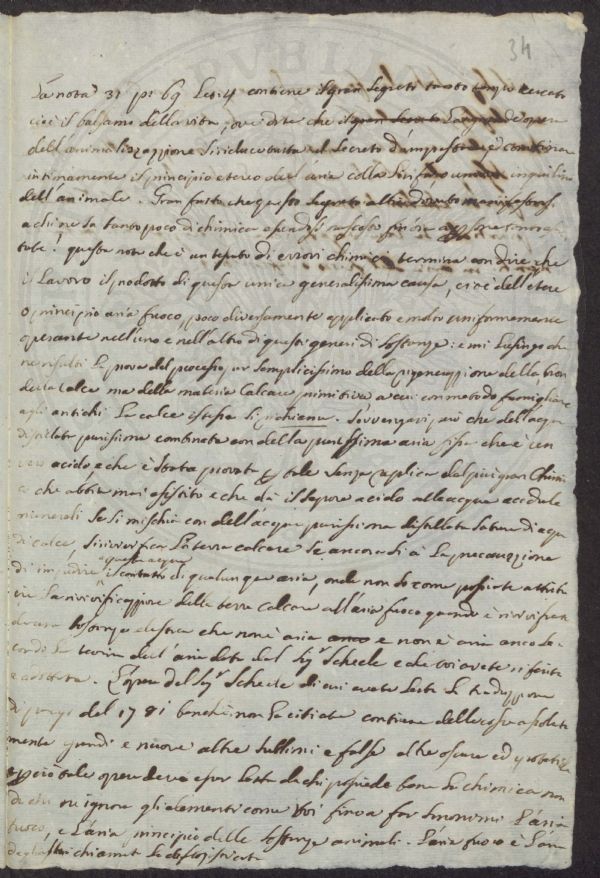 34
La nota 31 pa 69 contiene il gran segreto tanto tempo cercato
cioè il balsamo della vita, ove dite che il gran
dell'animalizzazione si riduce tutta al secreto d'
intimamente il principio etereo dell'aria colla
dell'animale. Gran fatto che questo segreto
a chi ne sa tanto poco di chimica nascosto finora
tale! questa nota che è un tessuto di errori chimici termina con dire che
il Lavoro il prodotto di questa unica generalissima causa, cioè dell'etere
o principio aria fuoco, poco diversamente applicato e molto uniformemente
operante nell'uno e nell'altro di questi generi di sostanze: e mi lusingo che
ne risulti la prova del processo semplicissimo della rigenerazione della, non
della calce ma della materia calcare primitiva a cui con metodo
agli antichi la calce istessa si richiama. Sovvengavi però che dell'acqua
distillata purissima combinata con della purissima aria fissa che è un
vero acido e che è stata provata tale senza replica dal più gran Chimi-
co che abbia mai esistito e che dà il sapore acido alle acque acidule
minerali se si mischia con dell'acqua purissima distillata satura di acqua
di calce, si rivivifica la terra calcare se ancora si à la precauzione
di impedire a quest'acqua il contatto di qualunque aria, onde non so come possiate attribui-
re la rivivificazione della terra calcare all'aria fuoco quando è rivivificata
da una sostanza elastica che non è aria e non è aria anco se-
condo la teoria dell'aria data dal Sigr Scheele e che voi avete
e adottata. L'opera del Sigr Scheele di cui avete letta la traduzzione
di Parigi del 1781 benchè non la citiate contiene delle cose assoluta
mente grandi e nuove altre e false altre oscure ed ipotetiche
e perciò tale opera deve esser letta da chi possiede bene la chimica non
da chi ne ignora gli elementi come Voi fin a far sinonimi l'aria
fuoco, e l'aria principio delle sostanze animali. L'aria fuoco è l'aria
dagli altri chiamata deflogisticata